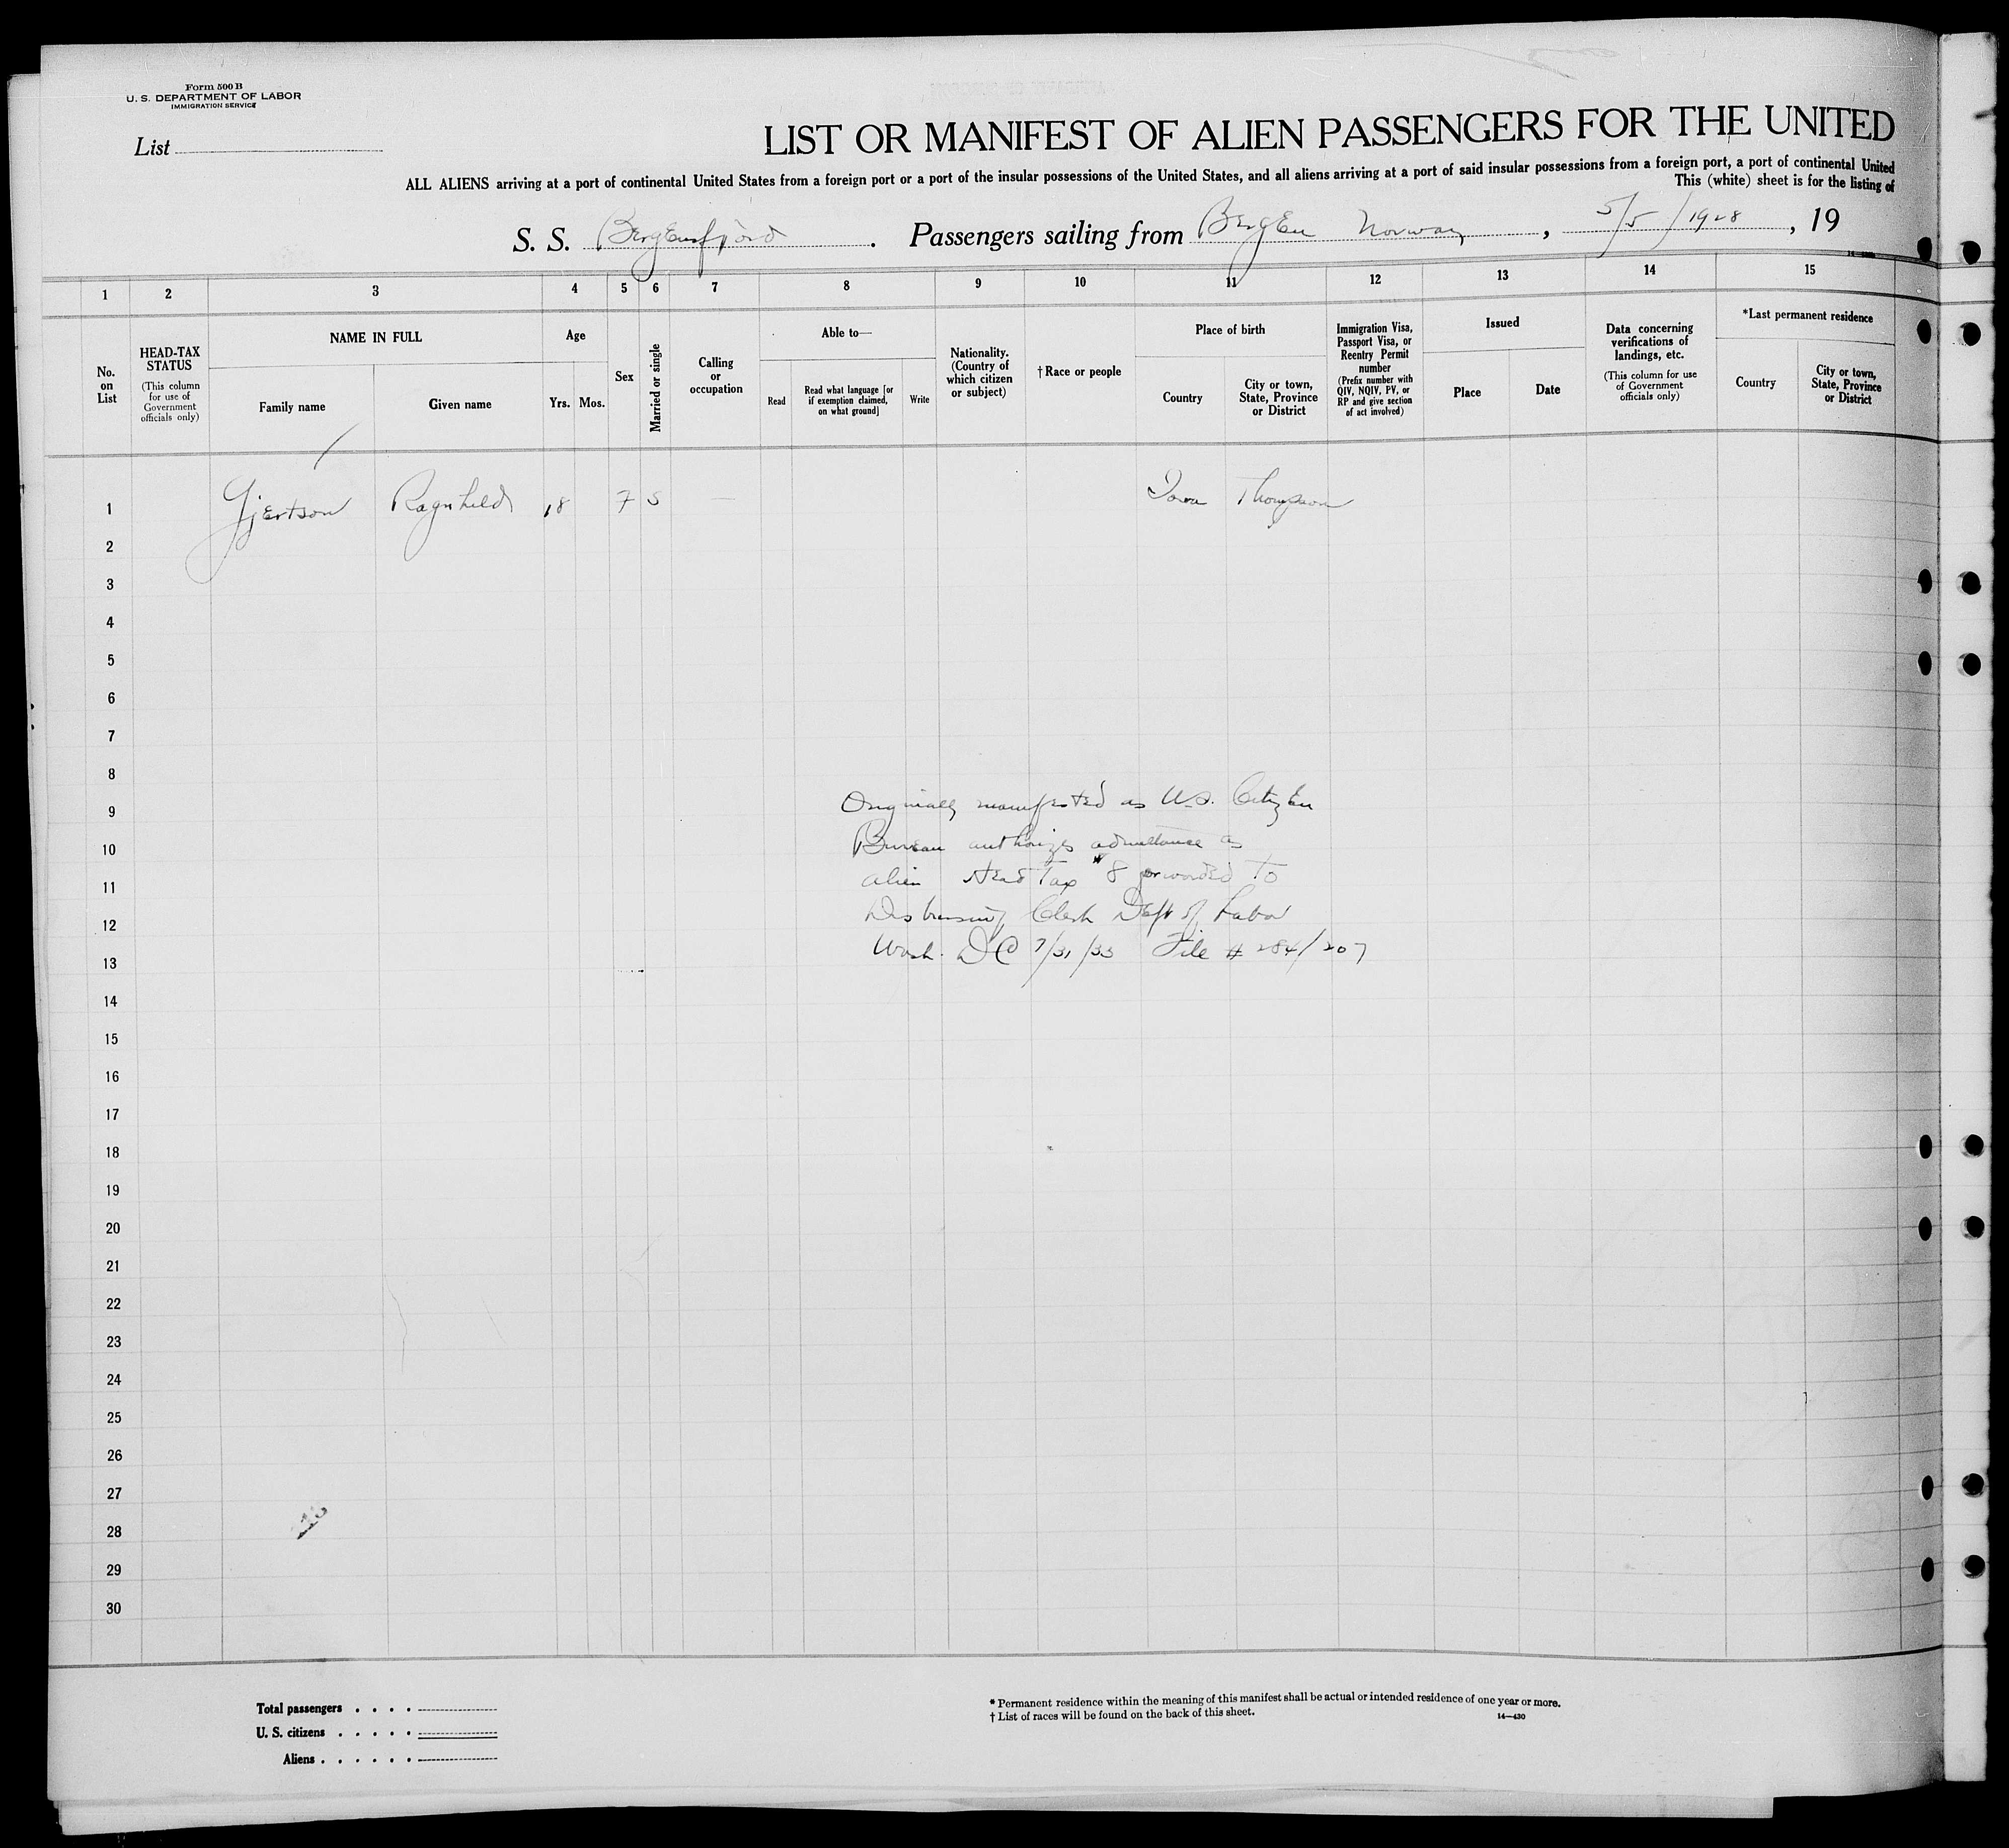 Form 500 B
U. S. DEPARTMENT OF LABOR
IMMIGRATION SERVICE
List
LIST OR MANIFEST OF ALIEN PASSENGERS FOR THE UNITED
ALL ALIENS arriving at a port of continental United States from a foreign port or a port of the insular possessions of the United States, and all aliens arriving at a port of said insular possessions from a foreign port, a port of continental United
This (white) sheet is for the listing of
S. S. Bergensfjord . Passengers sailing from Bergen Norway , 5/5/1928 , 19
1 2 3 4 5 6 7 8 9 10 11 12 13 14 15
No. on List
HEAD-TAX STATUS
(This column for use of Government officials only)
NAME IN FULL
Family name
Given name
Age
Yrs. Mos.
Sex
Married or single
Calling or occupation
Able to—
Read
Read what language [or if exemption claimed, on what ground]
Write
Nationality. (Country of which citizen or subject)
† Race or people
Place of birth
Country
City or town, State, Province or District
Immigration Visa, Passport Visa, or Reentry Permit number
(Prefix number with QIV, NQIV, PV, or RP and give section of act involved)
Issued
Place
Date
Data concerning verifications of landings, etc.
(This column for use of Government officials only)
*Last permanent residence
Country
City or town, State, Province or District
1 Gjertson Ragnhild 18 F S — Iowa Thompson
2
3
4
5
6
7
8
9 Originally manifested as U.S. Citizen
10 Bureau authorizes admittance as
11 alien Head Tax $8 forwarded to
12 Disbursing Clerk Dept of Labor
13 Wash. DC 7/31/33 File # 284/207
14
15
16
17
18
19
20
21
22
23
24
25
26
27
28
29
30
Total passengers . . . .
U. S. citizens . . . . .
Aliens . . . . . .
* Permanent residence within the meaning of this manifest shall be actual or intended residence of one year or more.
† List of races will be found on the back of this sheet.
14—430